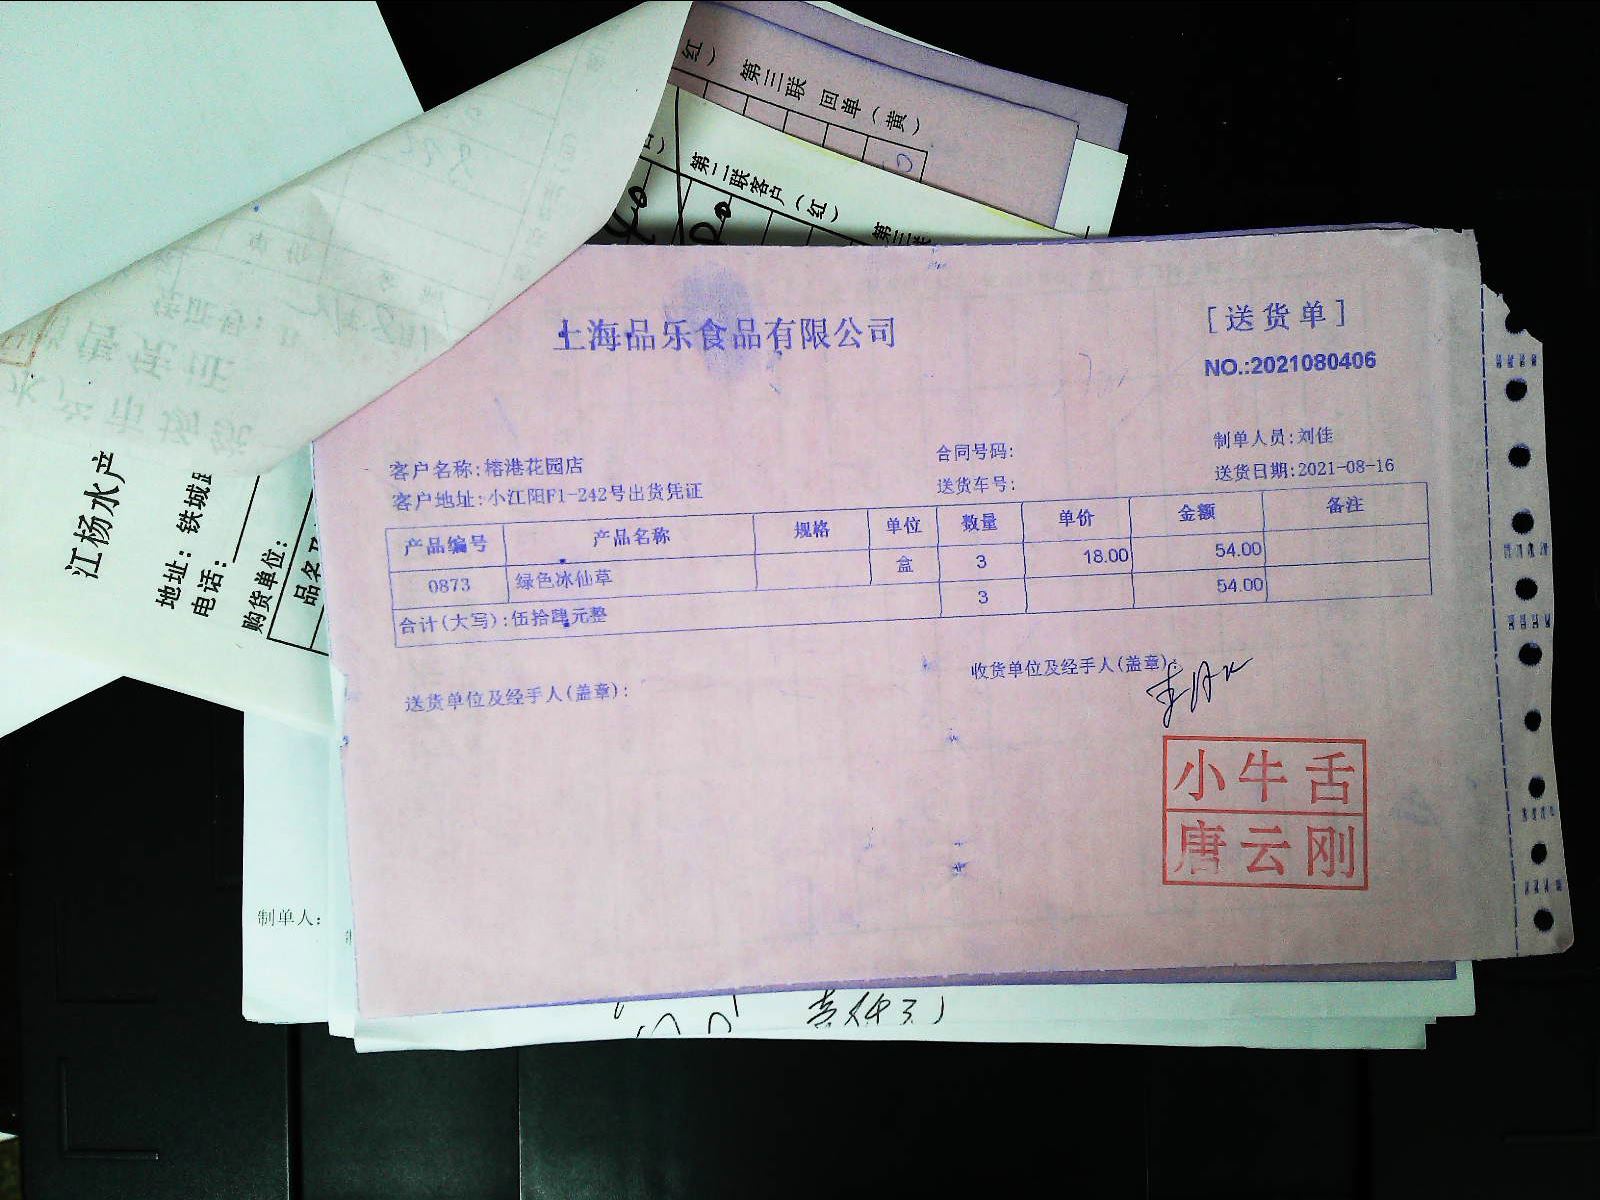 上海品乐食品有限公司
[送货单]
NO.:2021080406
客户名称:榕港花园店
合同号码:
制单人员:刘佳
客户地址:小江阳F1-242号出货凭证
送货车号:
送货日期:2021-08-16
产品编号 产品名称 规格 单位 数量 单价 金额 备注
0873 绿色冰仙草 盒 3 18.00 54.00
合计(大写):伍拾肆元整 3 54.00
送货单位及经手人(盖章):
收货单位及经手人(盖章):
小牛舌
唐云刚
第三联 回单(黄)
第二联客户(红)
第三联
红)
江杨水产
地址:铁城
电话:
购货单位:
品名
制单人: